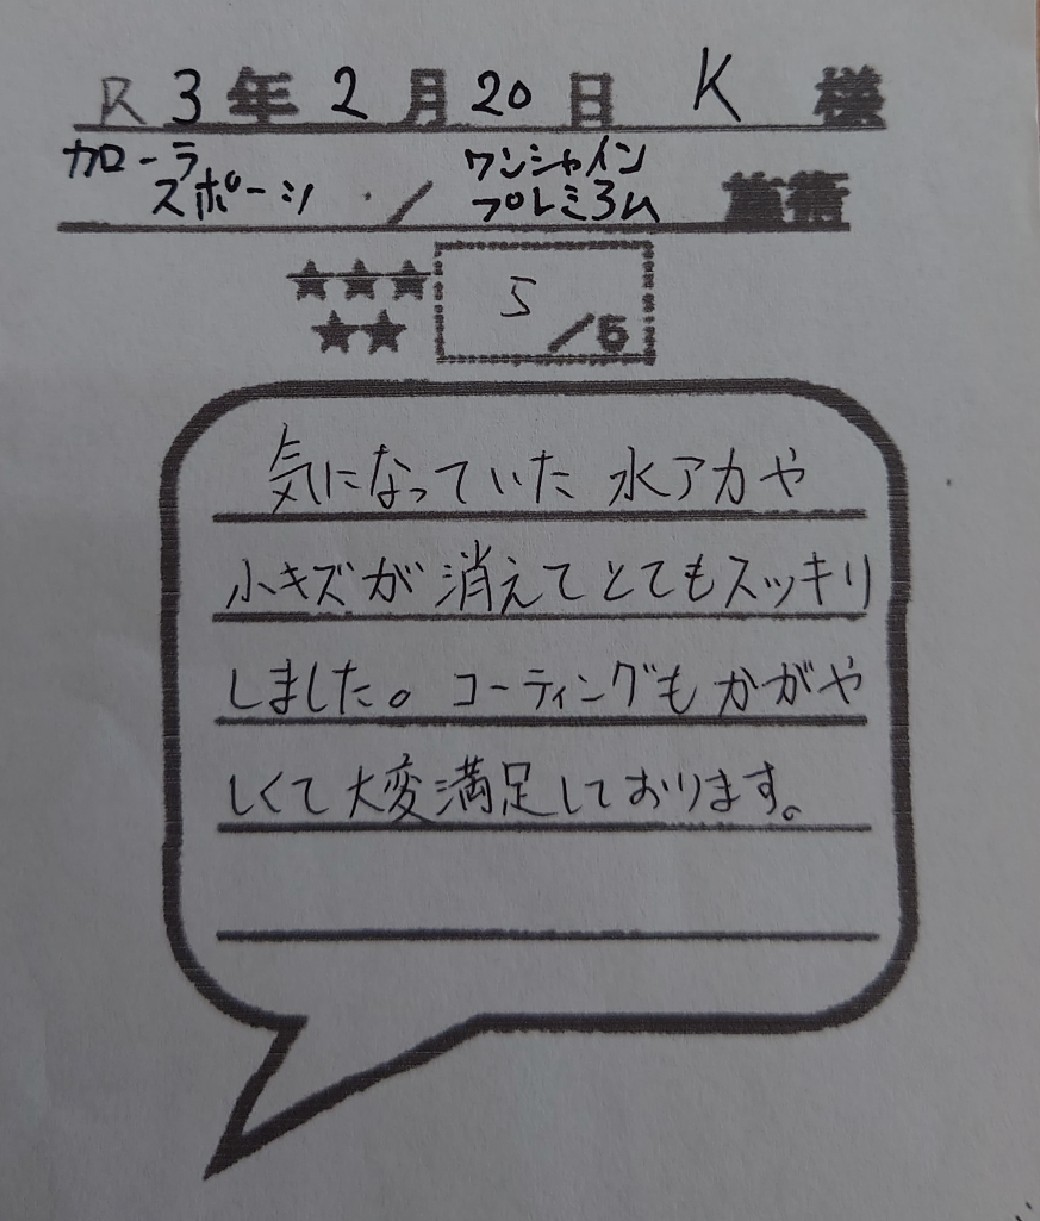 R3年2月20日 K 様
カローラ ワンシャイン
スポーツ / プレミアム 施術
★★★
★★ 5/5
気になっていた水アカや
小キズが消えてとてもスッキリ
しました。コーティングもかがや
しくて大変満足しております。